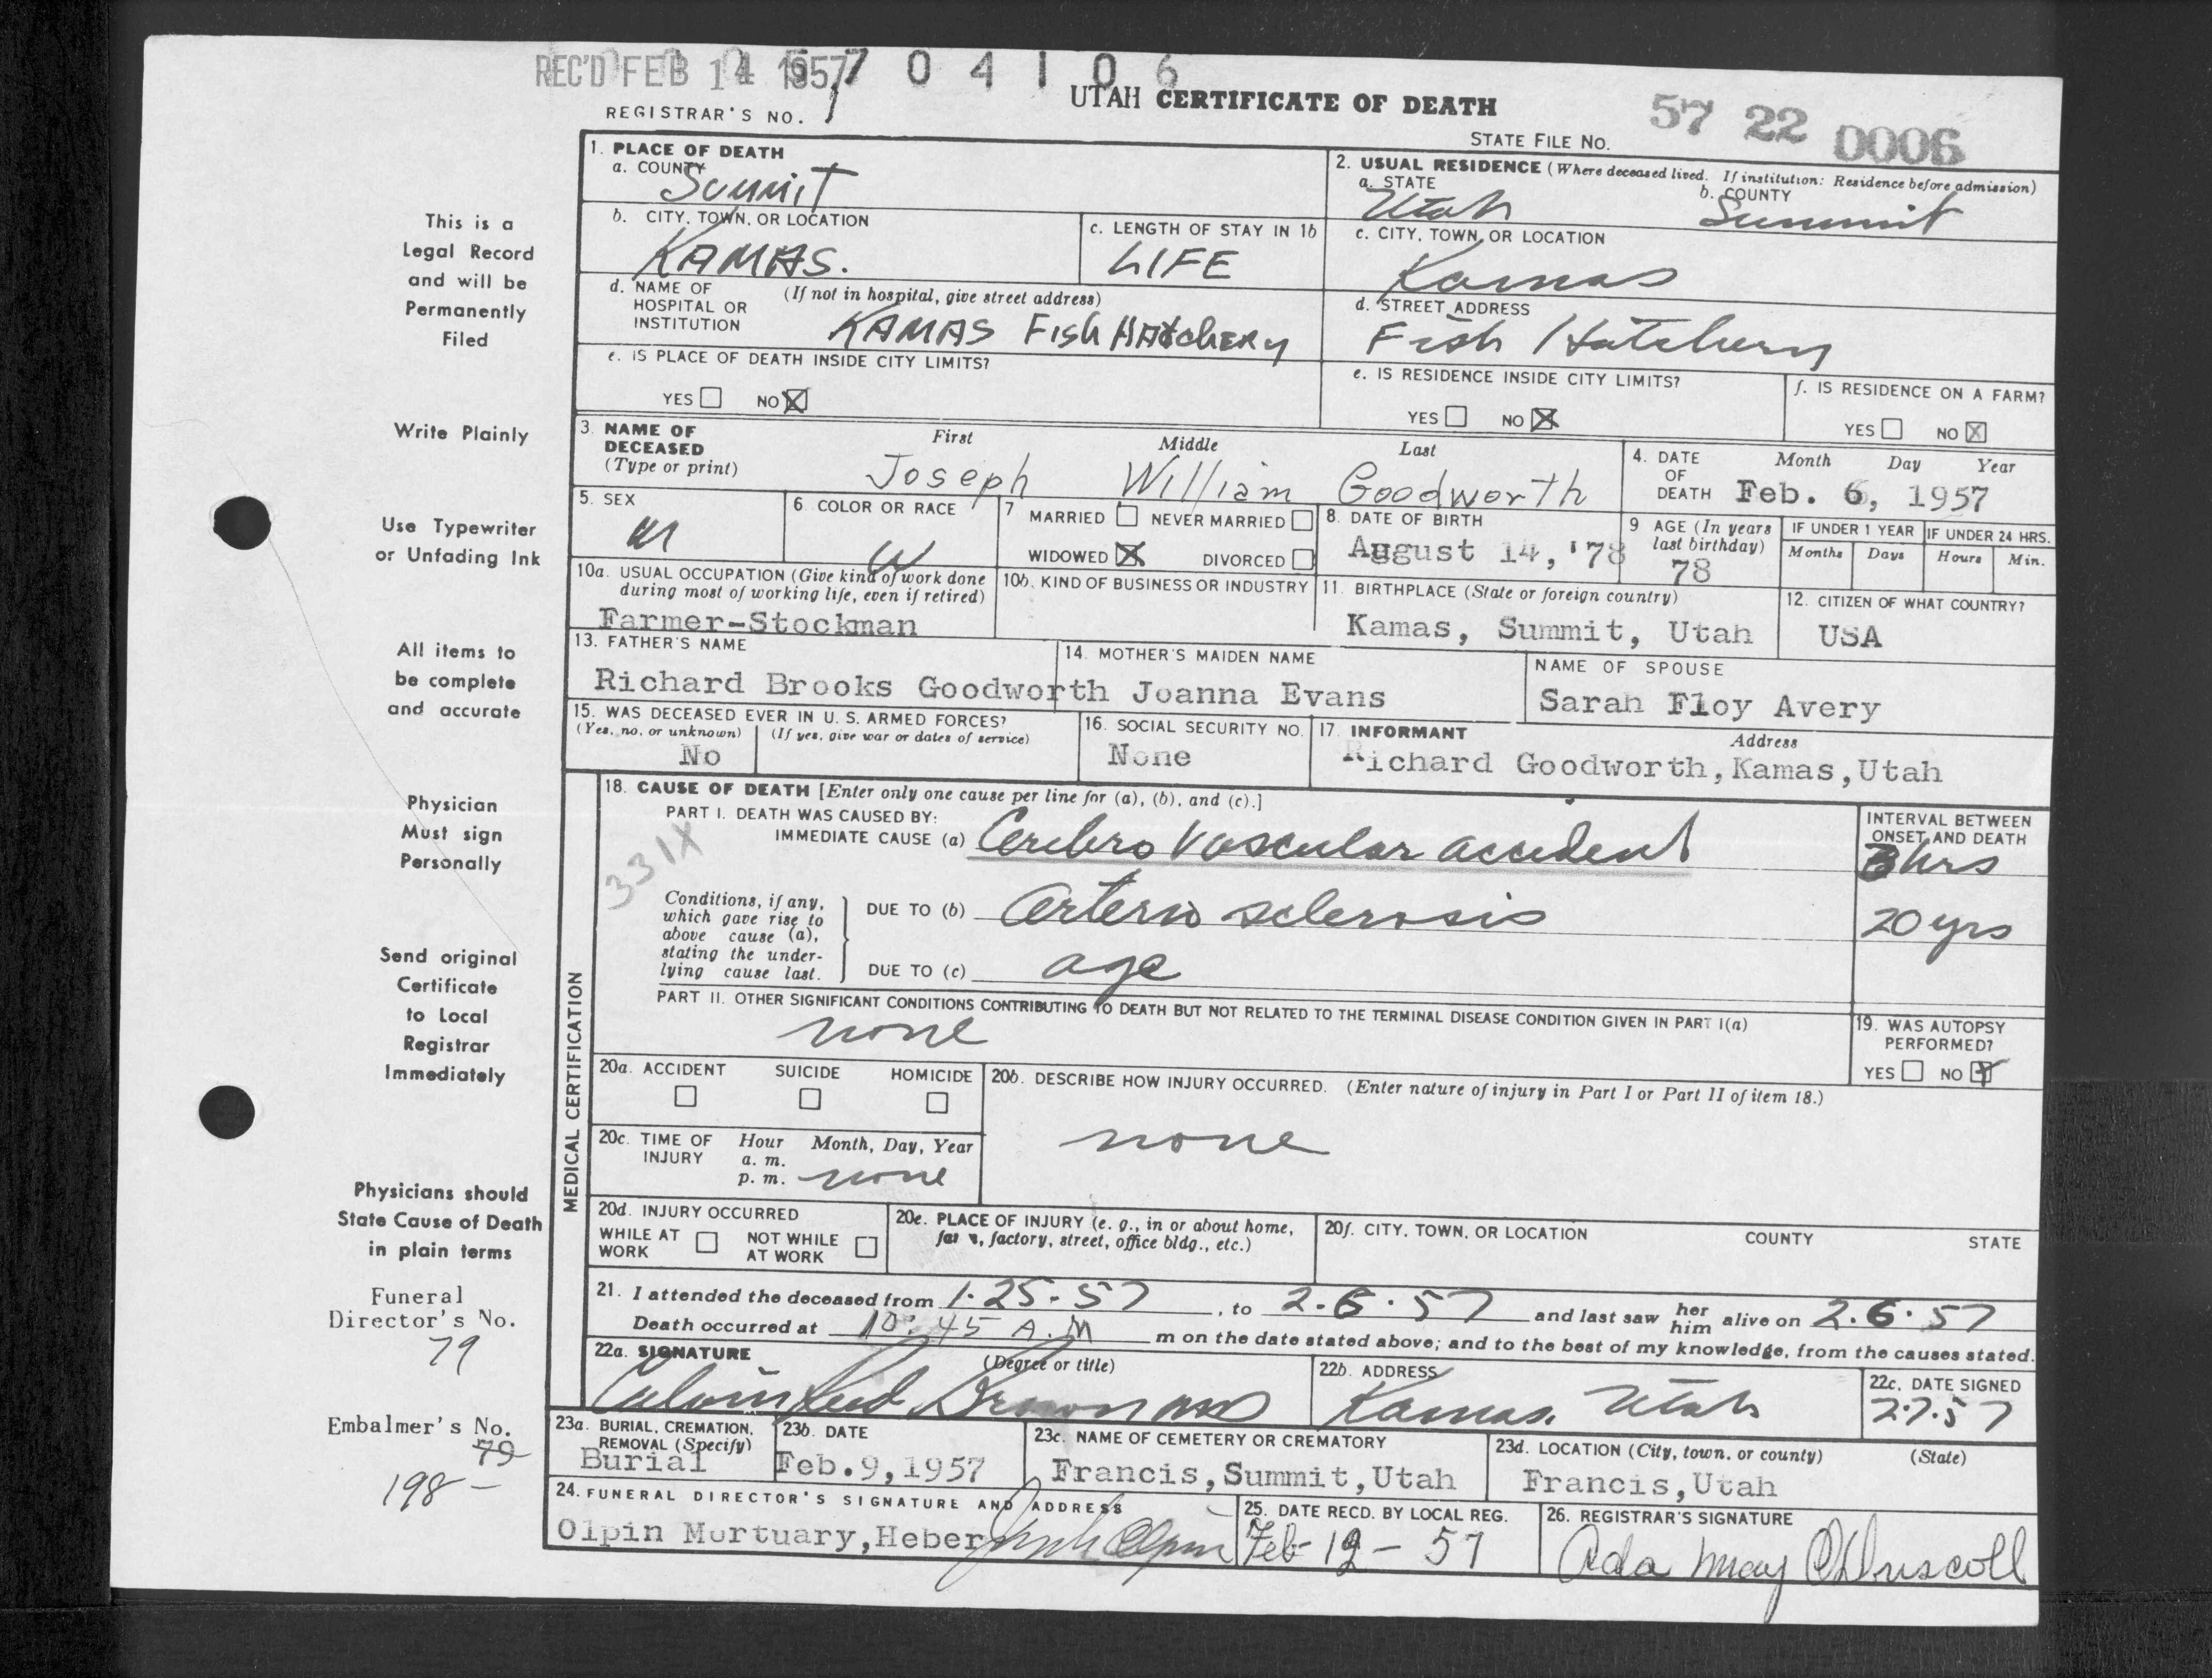 REC'D FEB 14 1957 7 0 4 1 0 6
REGISTRAR'S NO. 1
UTAH CERTIFICATE OF DEATH
STATE FILE NO. 57 22 0006
1. PLACE OF DEATH
a. COUNTY
Summit
2. USUAL RESIDENCE (Where deceased lived. If institution: Residence before admission)
a. STATE b. COUNTY
Utah Summit
b. CITY, TOWN, OR LOCATION
KAMAS.
c. LENGTH OF STAY IN 1b
LIFE
c. CITY, TOWN, OR LOCATION
Kamas
d. NAME OF HOSPITAL OR INSTITUTION (If not in hospital, give street address)
KAMAS Fish HAtchERy
d. STREET ADDRESS
Fish Hatchery
e. IS PLACE OF DEATH INSIDE CITY LIMITS?
YES NO X
e. IS RESIDENCE INSIDE CITY LIMITS?
YES NO X
f. IS RESIDENCE ON A FARM?
YES NO X
3. NAME OF DECEASED (Type or print)
First Middle Last
Joseph William Goodworth
4. DATE OF DEATH Month Day Year
Feb. 6, 1957
5. SEX
M
6 COLOR OR RACE
W
7 MARRIED NEVER MARRIED
WIDOWED X DIVORCED
8. DATE OF BIRTH
August 14, '78
9 AGE (In years last birthday)
78
IF UNDER 1 YEAR IF UNDER 24 HRS.
Months Days Hours Min.
10a. USUAL OCCUPATION (Give kind of work done during most of working life, even if retired)
Farmer-Stockman
10b. KIND OF BUSINESS OR INDUSTRY
11. BIRTHPLACE (State or foreign country)
Kamas, Summit, Utah
12. CITIZEN OF WHAT COUNTRY?
USA
13. FATHER'S NAME
Richard Brooks Goodworth
14. MOTHER'S MAIDEN NAME
Joanna Evans
NAME OF SPOUSE
Sarah Floy Avery
15. WAS DECEASED EVER IN U. S. ARMED FORCES?
(Yes, no, or unknown) (If yes, give war or dates of service)
No
16. SOCIAL SECURITY NO.
None
17. INFORMANT Address
Richard Goodworth, Kamas, Utah
MEDICAL CERTIFICATION
18. CAUSE OF DEATH [Enter only one cause per line for (a), (b), and (c).]
PART I. DEATH WAS CAUSED BY:
IMMEDIATE CAUSE (a) Cerebro Vascular accident
331X
INTERVAL BETWEEN ONSET AND DEATH
3 hrs
Conditions, if any, which gave rise to above cause (a), stating the underlying cause last.
DUE TO (b) Arterio sclerosis
20 yrs
DUE TO (c) age
PART II. OTHER SIGNIFICANT CONDITIONS CONTRIBUTING TO DEATH BUT NOT RELATED TO THE TERMINAL DISEASE CONDITION GIVEN IN PART I(a)
none
19. WAS AUTOPSY PERFORMED?
YES NO X
20a. ACCIDENT SUICIDE HOMICIDE
20b. DESCRIBE HOW INJURY OCCURRED. (Enter nature of injury in Part I or Part II of item 18.)
none
20c. TIME OF INJURY Hour Month, Day, Year
a. m.
p. m. none
20d. INJURY OCCURRED
WHILE AT WORK NOT WHILE AT WORK
20e. PLACE OF INJURY (e. g., in or about home, farm, factory, street, office bldg., etc.)
20f. CITY, TOWN, OR LOCATION COUNTY STATE
21. I attended the deceased from 1-25-57, to 2-6-57 and last saw her him alive on 2.6.57
Death occurred at 10:45 A.M m on the date stated above; and to the best of my knowledge, from the causes stated.
22a. SIGNATURE (Degree or title)
Calvin Reed Brown MD
22b. ADDRESS
Kamas, Utah
22c. DATE SIGNED
2.7.57
23a. BURIAL, CREMATION, REMOVAL (Specify)
Burial
23b. DATE
Feb.9,1957
23c. NAME OF CEMETERY OR CREMATORY
Francis, Summit, Utah
23d. LOCATION (City, town, or county) (State)
Francis, Utah
24. FUNERAL DIRECTOR'S SIGNATURE AND ADDRESS
Olpin Mortuary, Heber
25. DATE RECD. BY LOCAL REG.
Feb- 12 - 57
26. REGISTRAR'S SIGNATURE
Ada May O'Driscoll
This is a
Legal Record
and will be
Permanently
Filed
Write Plainly
Use Typewriter
or Unfading Ink
All items to
be complete
and accurate
Physician
Must sign
Personally
Send original
Certificate
to Local
Registrar
Immediately
Physicians should
State Cause of Death
in plain terms
Funeral
Director's No.
79
Embalmer's No.
79
198 -